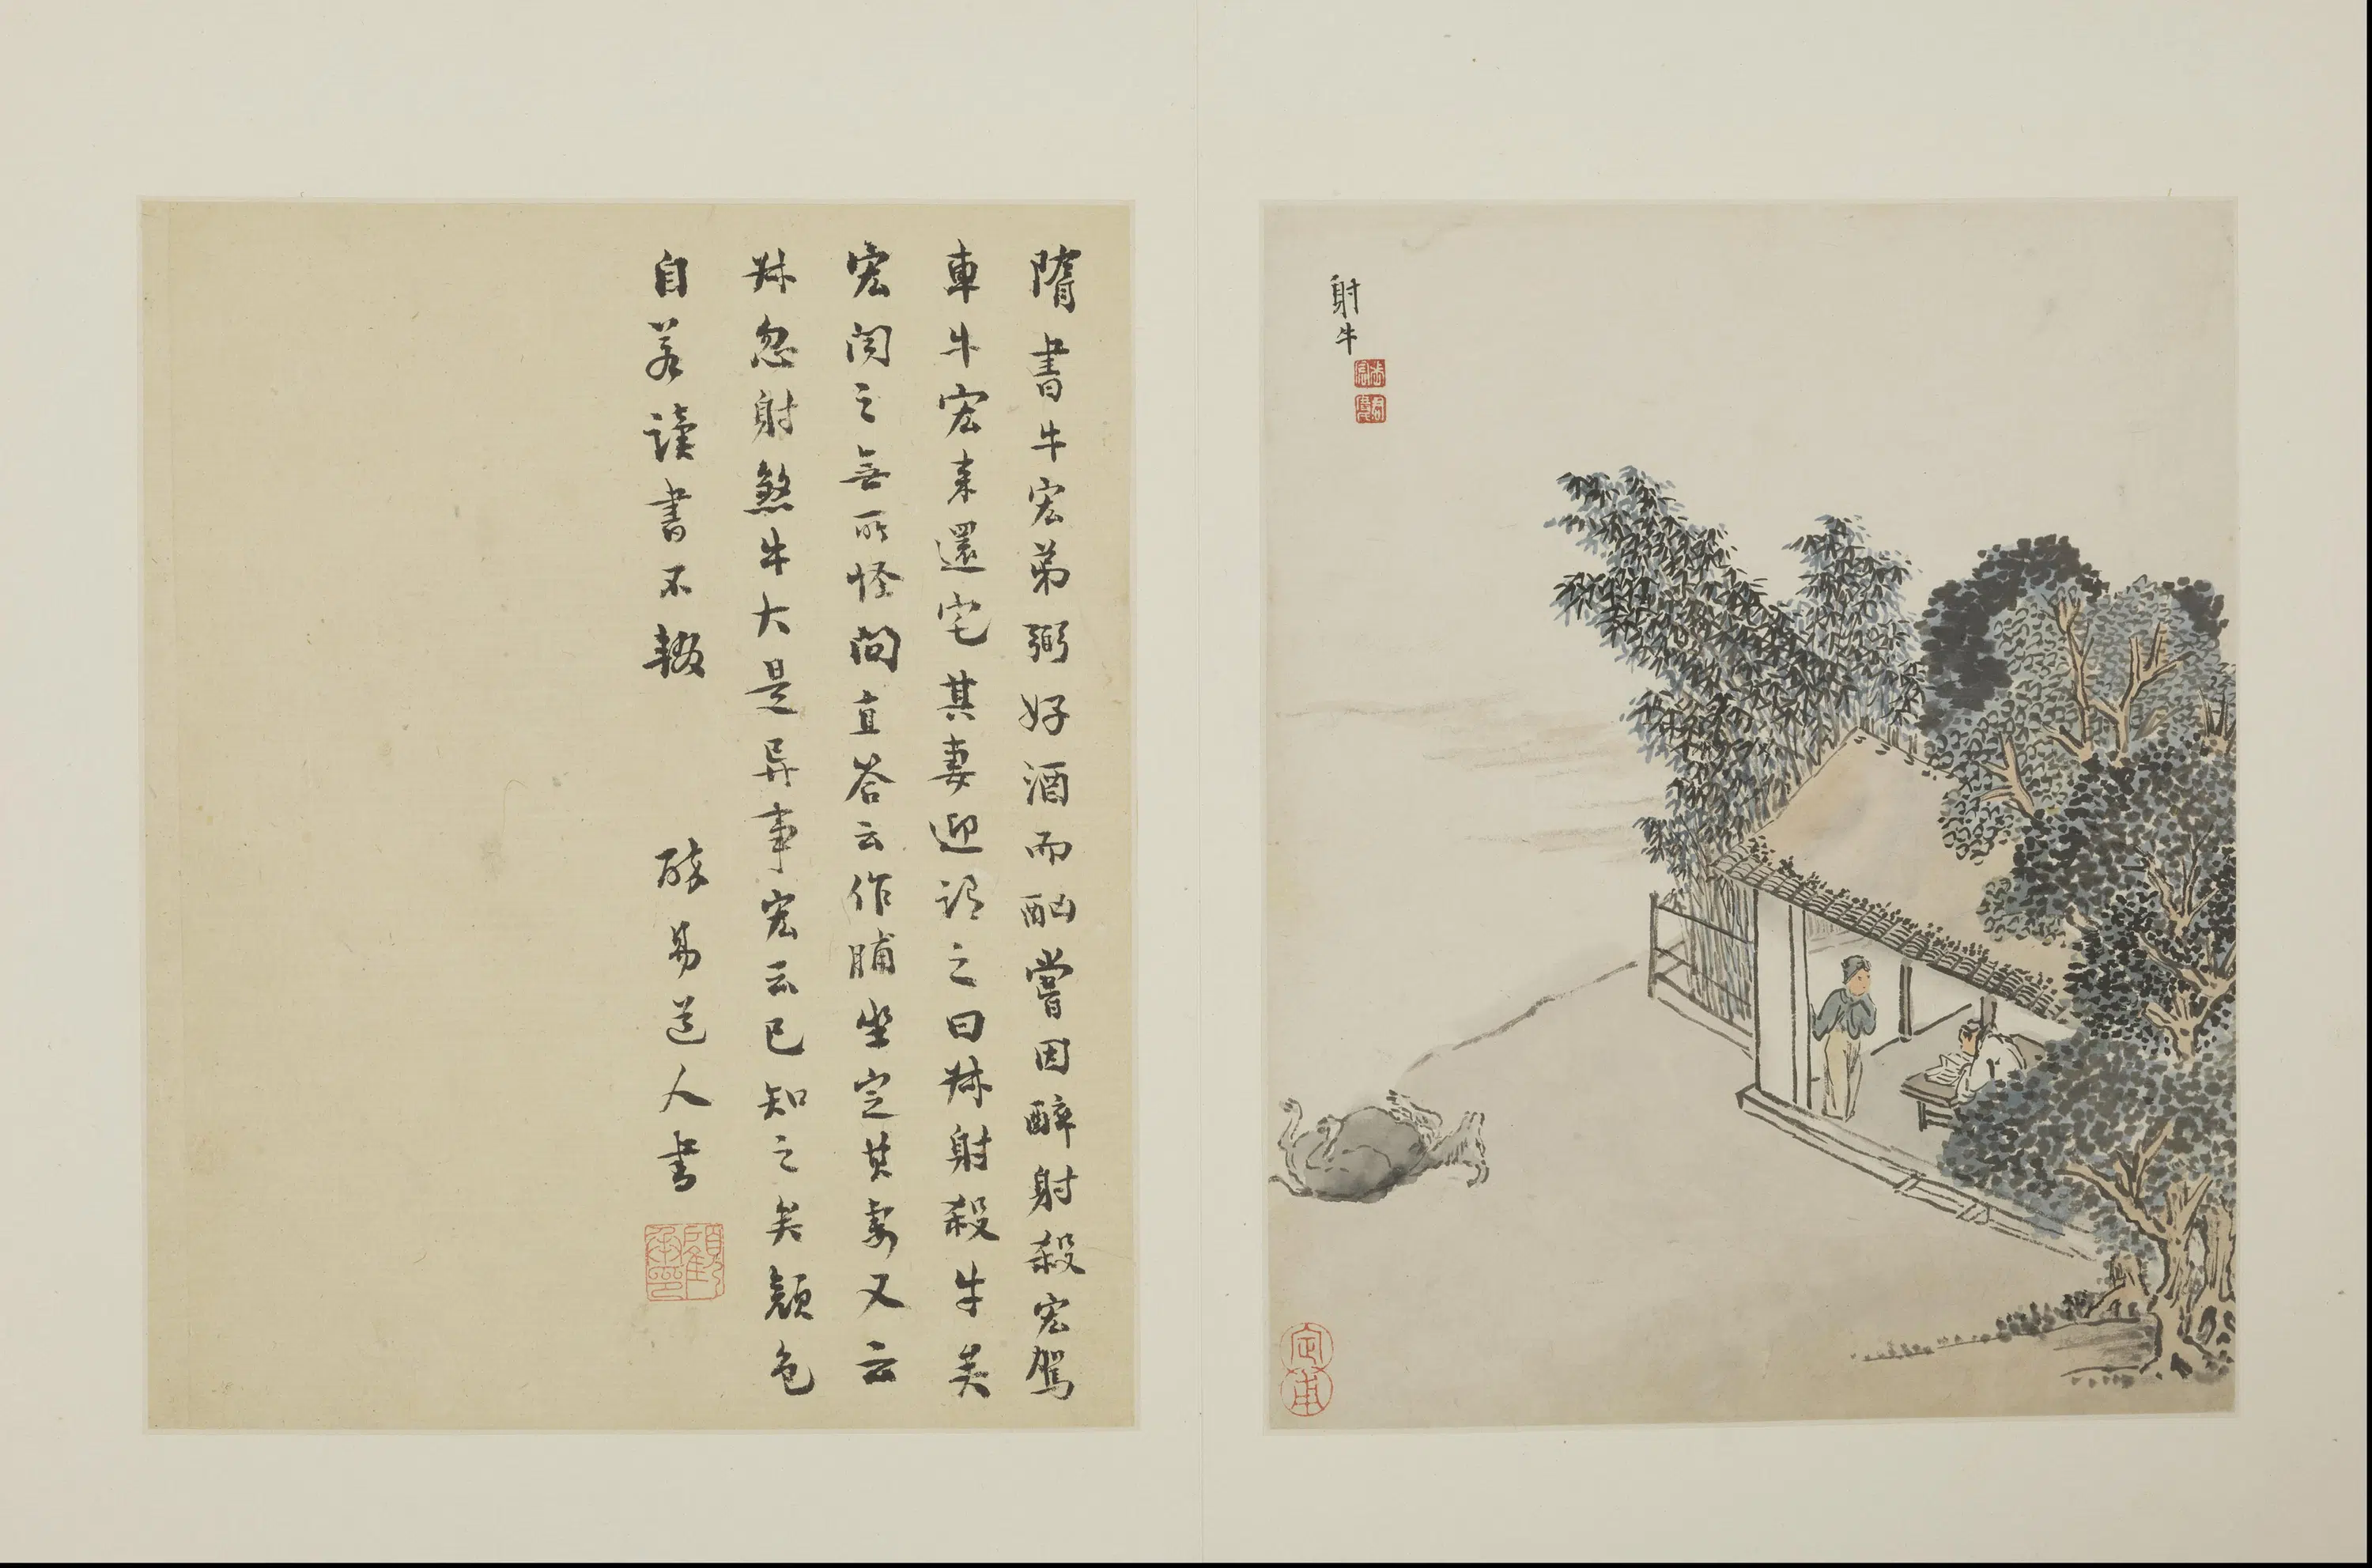 射牛
隋書牛宏弟弼好酒而酗嘗因醉射殺宏駕
車牛宏來還宅其妻迎謂之曰叔射殺牛矣
宏聞之無所怪問直答云作脯坐定其妻又云
叔忽射煞牛大是异事宏云已知之矣顏色
自若讀書不輟
醉易道人書
定甫